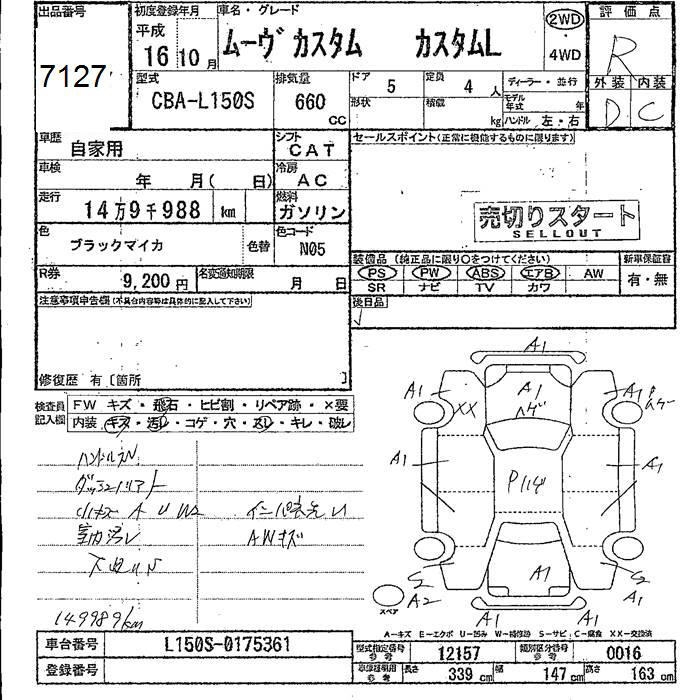 出品番号
7127
初度登録年月
平成
16年10月
車名・グレード
ムーヴ カスタム カスタムL
2WD
4WD
評価点
R
外装 内装
D C
型式
CBA-L150S
排気量
660
cc
ドア
5
定員
4人
ディーラー・並行
形状
積載
kg
モデル年式
年
ハンドル 左・右
車歴
自家用
シフト
CAT
セールスポイント(正常に機能するものに限ります)
車検
年 月( 日)
冷房
AC
走行
14万9千988 km
燃料
ガソリン
売切りスタート
SELLOUT
色
ブラックマイカ
色替
色コード
N05
装備品(純正品に限り○をつけてください)
新車保証書
PS PW ABS エアB AW
有・無
SR ナビ TV カワ
R券
9,200円
名変通知期限
月 日
後日品
注意事項申告欄(不具合内容等は具体的に記入して下さい)
修復歴 有〔箇所 〕
検査員
記入欄
FW キズ・飛石・ヒビ割・リペア跡・×要
内装 キズ・汚レ・コゲ・穴・ズレ・キレ・破レ
AWキズ
149989km
A1
A1
ハゲ
A1
XX
A1
A1
A1
A1
S
A2
S
A1
A1
A1
スペア
A－キズ E－エクボ U－凹み W－補修跡 S－サビ C－腐食 XX－交換済
車台番号
L150S-0175361
登録番号
型式指定番号
参考
12157
類別区分番号
参考
0016
車検証明用
参考
長さ
339 cm
幅
147 cm
高さ
163 cm